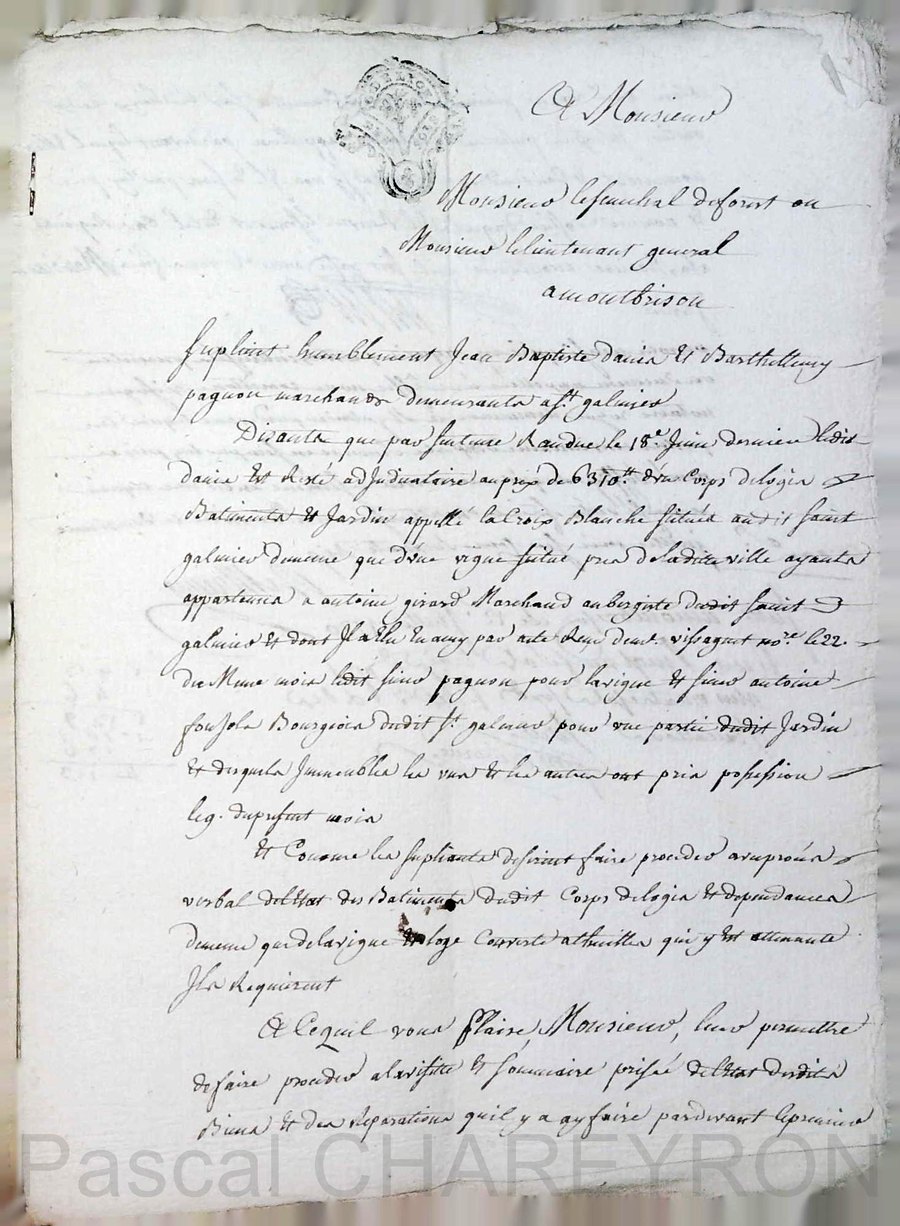 A Monsieur
Monsieur le senechal de forest ou
Monsieur le lieutenant general
a montbrison
suplient humblement Jean Baptiste davia Et Barthellemy
pagnon marchands demeurants a st. galmier
Disants que par sentence Randue le 18e. Juin dernier ledit
davia Est Resté adjudicataire au prix de 6310tt d'un Corps de logis
Batiments Et Jardin appellé la Croix Blanche situés audit saint
galmier de meme que d'une vigne situé pres de ladite ville ayants
appartenus a antoine girard Marchand aubergiste dudit saint
galmier Et dont Il a Elu En amy par acte Reçu devt. no.re le 22.
du Meme mois ledit sieur pagnon pour la vigne Et sieur antoine
fonjols Bourgeois dudit st. galmier pour une partie dudit Jardin
Et desquels Immeubles les uns Et les autres ont pris possession
le 9. du present mois
Et Comme les supliants desirent faire proceder a un procés
verbal de l'Etat des Batiments dudit Corps de logis Et dependances
de meme que de la vigne Et loge Couverte a thuilles qui y Est attenante
Ils Requierent
A Ce quil vous plaise, Monsieur, leur permettre
de faire proceder a la visitte Et sommaire prisée de l'Etat desdits
Biens Et des Reparations quil y a a y faire pardevant le premier
Pascal CHAREYRON